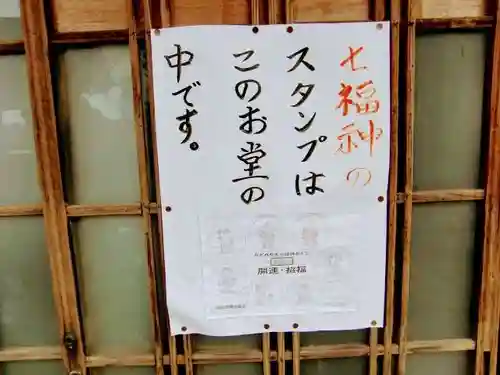 七福神の
スタンプは
このお堂の
中です。
開運・招福